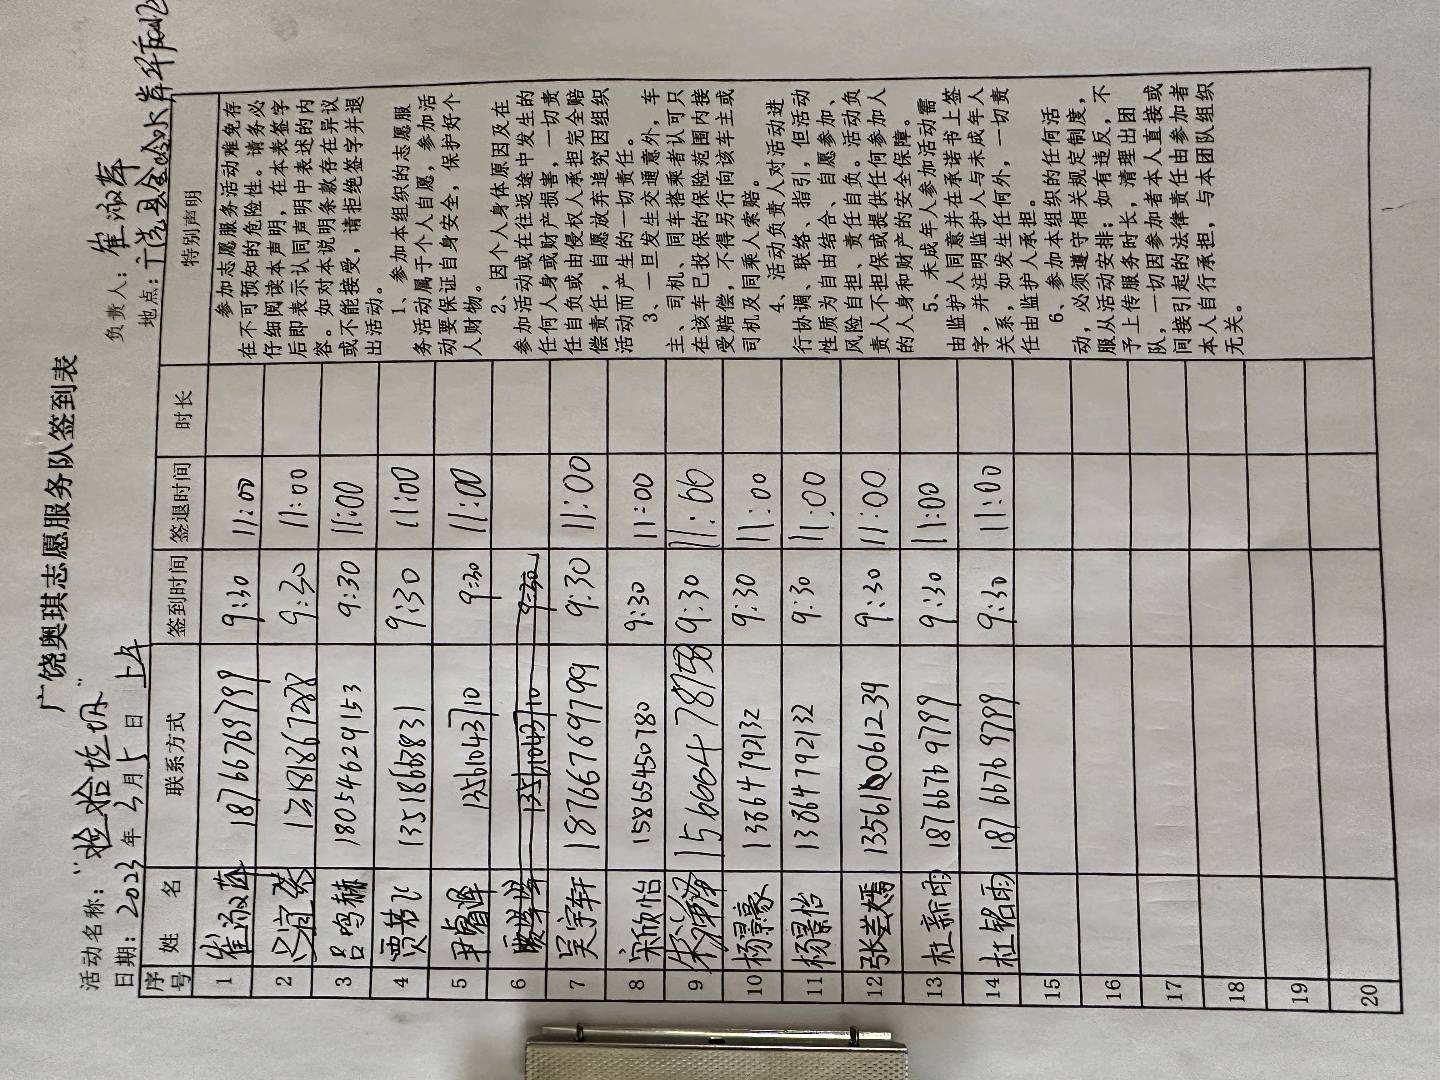 广饶奥琪志愿服务队签到表
活动名称：“捡拾垃圾” 负责人：崔淑萍
日期：2023年4月5日 上午 地点：广饶县
序号 姓名 联系方式 签到时间 签退时间 时长 特别声明
1 崔淑萍 18766769799 9:30 11:00
2 9:30 11:00
3 吕鸣赫 18054629153 9:30 11:00
4 贾若飞 9:30 11:00
5 尹睿泽 13561043710 9:30 11:00
6 13561043710 9:30
7 吴宇轩 18766769799 9:30 11:00
8 宋欣怡 15865450780 9:30 11:00
9 9:30 11:00
10 杨景豪 13864792132 9:30 11:00
11 杨景怡 13864792132 9:30 11:00
12 张芸嫣 135610061234 9:30 11:00
13 杜新雨 18766769799 9:30 11:00
14 杜铭雨 18766769799 9:30 11:00
15
16
17
18
19
20
参加志愿服务活动难免存
在不可预知的危险性。请务必
仔细阅读本声明，在本表签字
后即表示认同声明中表述的内
容。如对本说明条款存在异议
或不能接受，请拒绝签字并退
出活动。
1、参加本组织的志愿服
务活动属于个人自愿，参加活
动要保证自身安全，保护好个
人财物。
2、因个人身体原因及在
参加活动或在往返途中发生的
任何人身或财产损害，一切责
任自负或由侵权人承担完全赔
偿责任，自愿放弃追究因组织
活动而产生的一切责任。
3、一旦发生交通意外，车
主、司机、同车搭乘者认可只
在该车已投保的保险范围内接
受赔偿，不得另行向该车主或
司机及同乘人索赔。
4、活动负责人对活动进
行协调、联络、指引，但活动
性质为自由结合、自愿参加、
风险自担、责任自负。活动负
责人不担保或提供任何参加人
的人身和财产的安全保障。
5、未成年人参加活动需
由监护人同意并在承诺书上签
字，并注明监护人与未成年人
关系，如发生任何外，一切责
任由监护人承担。
6、参加本组织的任何活
动，必须遵守相关规定制度，
服从活动安排；如有违反，不
予上传服务时长，清理出团
队，一切因参加者本人直接或
间接引起的法律责任由参加者
本人自行承担，与本团队组织
无关。